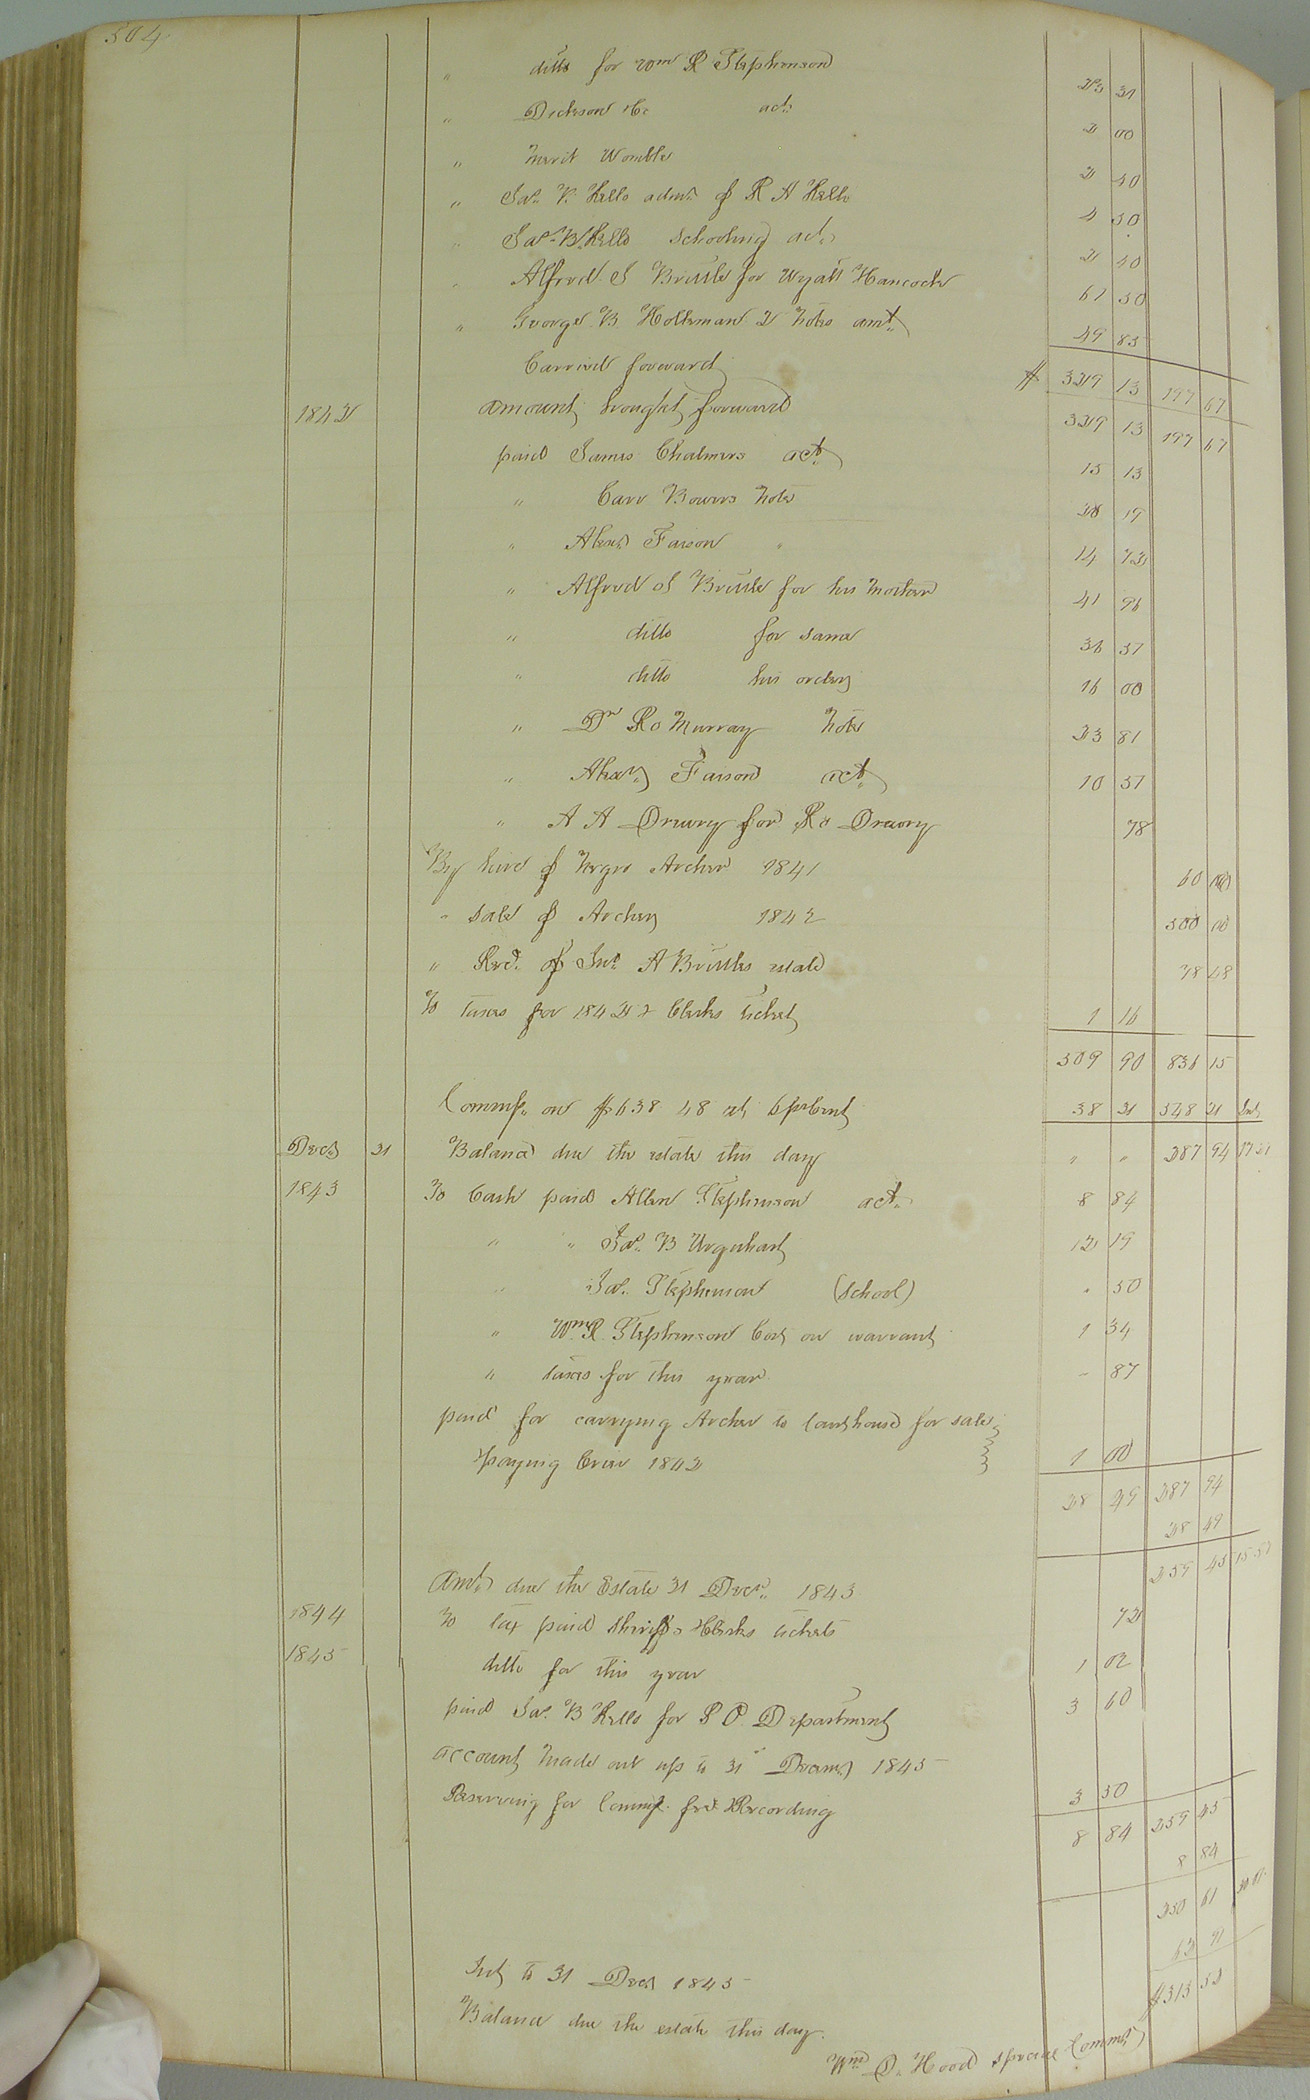 504
" ditto for Wm R Stephenson 25 31
" Dickson &Co act. 2 00
" Merit Womble 2 40
" Jas. V. Kello admr. of R A Kello 4 50
" Jas. B. Kello Schooling act. 2 40
" Alfred S Brittle for Wyatt Hancock 61 50
" George B Holleman 2 notes amt. 49 83
Carried forward $ 329 13 197 67
1842 amount brought forward 329 13 197 67
paid James Chalmers act. 15 13
" Carr Bowers note 28 19
" Alexr. Faison " 14 72
" Alfred S Brittle for his mother 41 96
" ditto for same 36 37
" ditto his order 16 00
" Dr Ro Murray note 23 81
" Alexr. Faison act. 10 37
" A A Drewry for Ro Drewry 78
By hire of Negro Archer 1841 60 00
" sale of Archer 1842 500 00
" Recd. of Jno. A Brittles estate 78 48
To taxes for 1842 & Clerks ticket 1 16
509 90 836 15
Commsn. on $638 48 at 6 pr Cent 38 31 548 21 Int
Decr 31 Balance due the estate this day " " 287 94 17 27
1843 To Cash paid Allen Stephenson act. 8 84
" " Jas. B Urquhart 12 19
" Jas. Stephenson (School) " 50
" Wm. R. Stephenson Cost on warrant 1 34
" taxes for this year - 87
paid for carrying Archer to Courthouse for sale
& paying Crier 1842 1 00
28 49 287 94
28 49
259 45 15 57
Amt. due the Estate 31 Decr. 1843
1844 To tax paid Sheriff & Clerks tickets 72
1845 ditto for this year 1 02
paid Jas. B Kello for P O Department 3 60
account made out up to 31st Decemr. 1845
Reserving for Commr. for Recording 3 50
8 84 259 45
8 84
250 61
62 91
Int to 31 Decr 1845
Balance due the estate this day. $313 52
Wm. D. Hood special Commr.